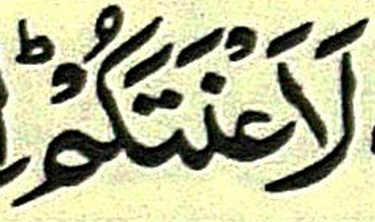 لَاَعْنَتَكُمْ ؕ